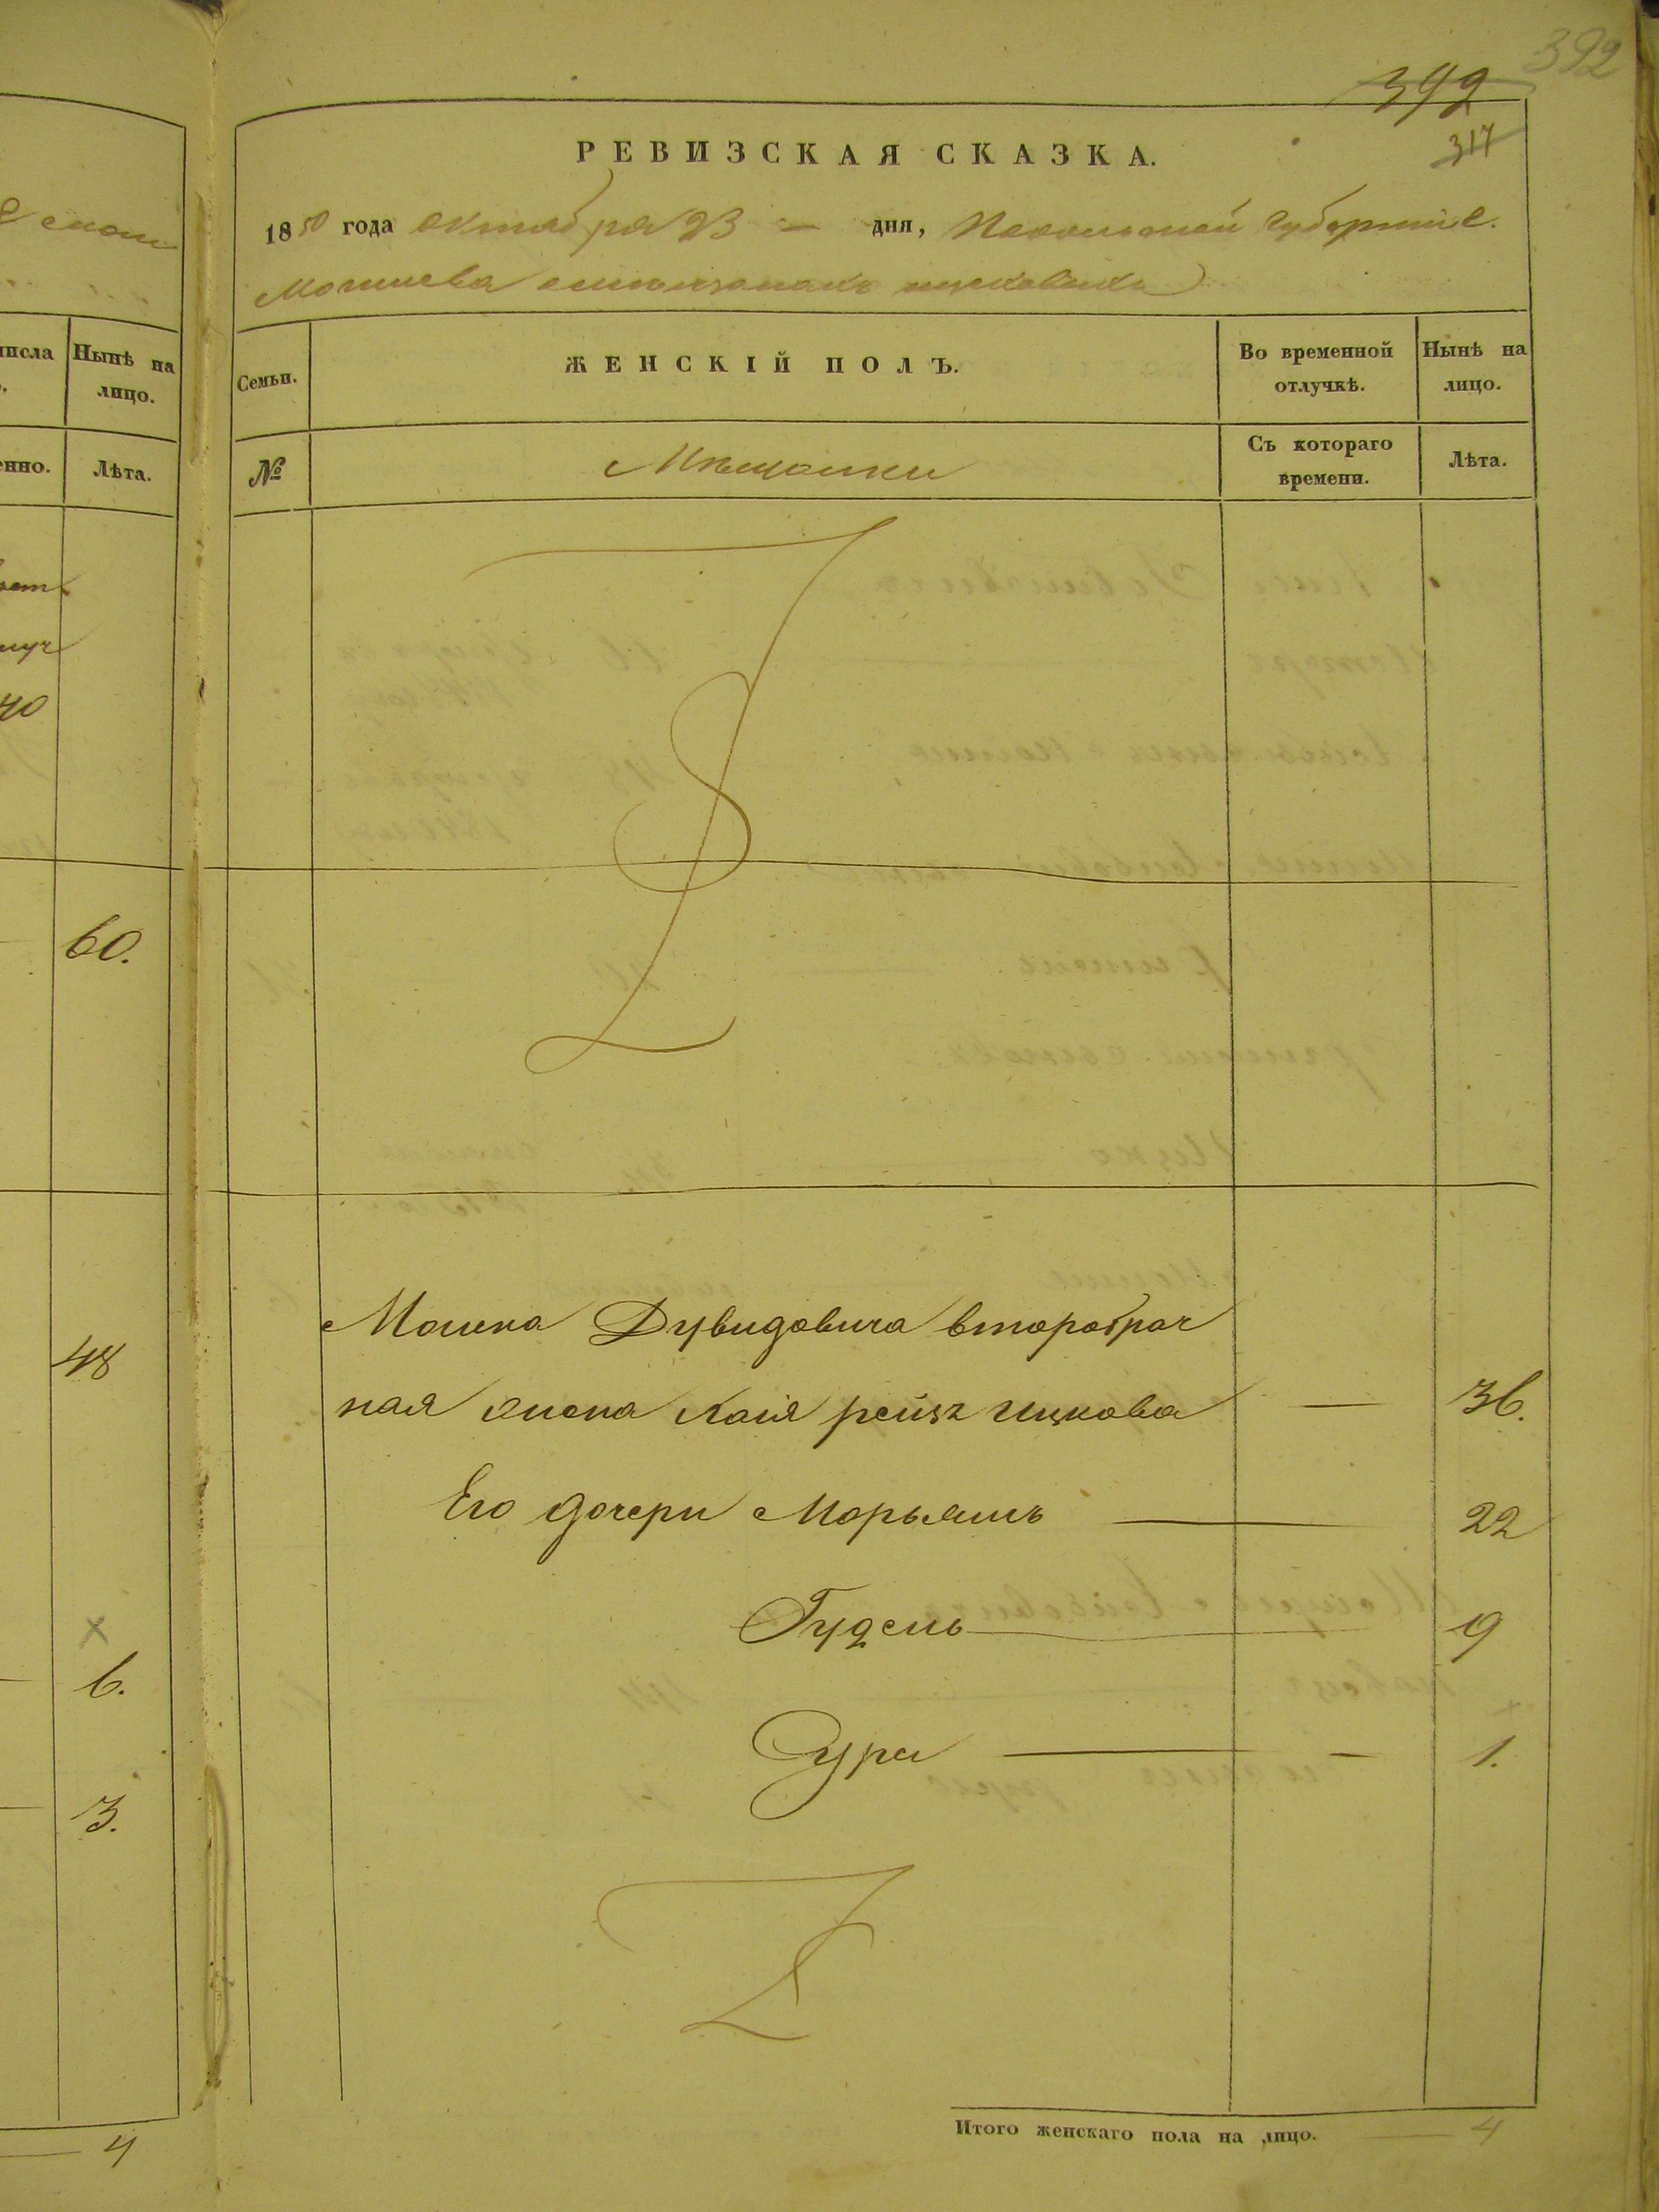 392
392
317
РЕВИЗСКАЯ СКАЗКА.
1850 года октября 23 дня, Подольской Губернии
Могилева
Семьи.
ЖЕНСКІЙ ПОЛЪ.
Во временной отлучкѣ.
Нынѣ на лицо.
№
Мѣщанки
Съ котораго времени.
Лѣта.
Мошка Дувидовича второбрач
ная жена Хаія рейзя Ицкова — 36.
Его дочери Марьямъ — 22
Гудель — 9
Сура — 1.
Итого женскаго пола на лицо. — 4
Нынѣ на лицо.
Лѣта.
40
60.
48
6.
3.
4